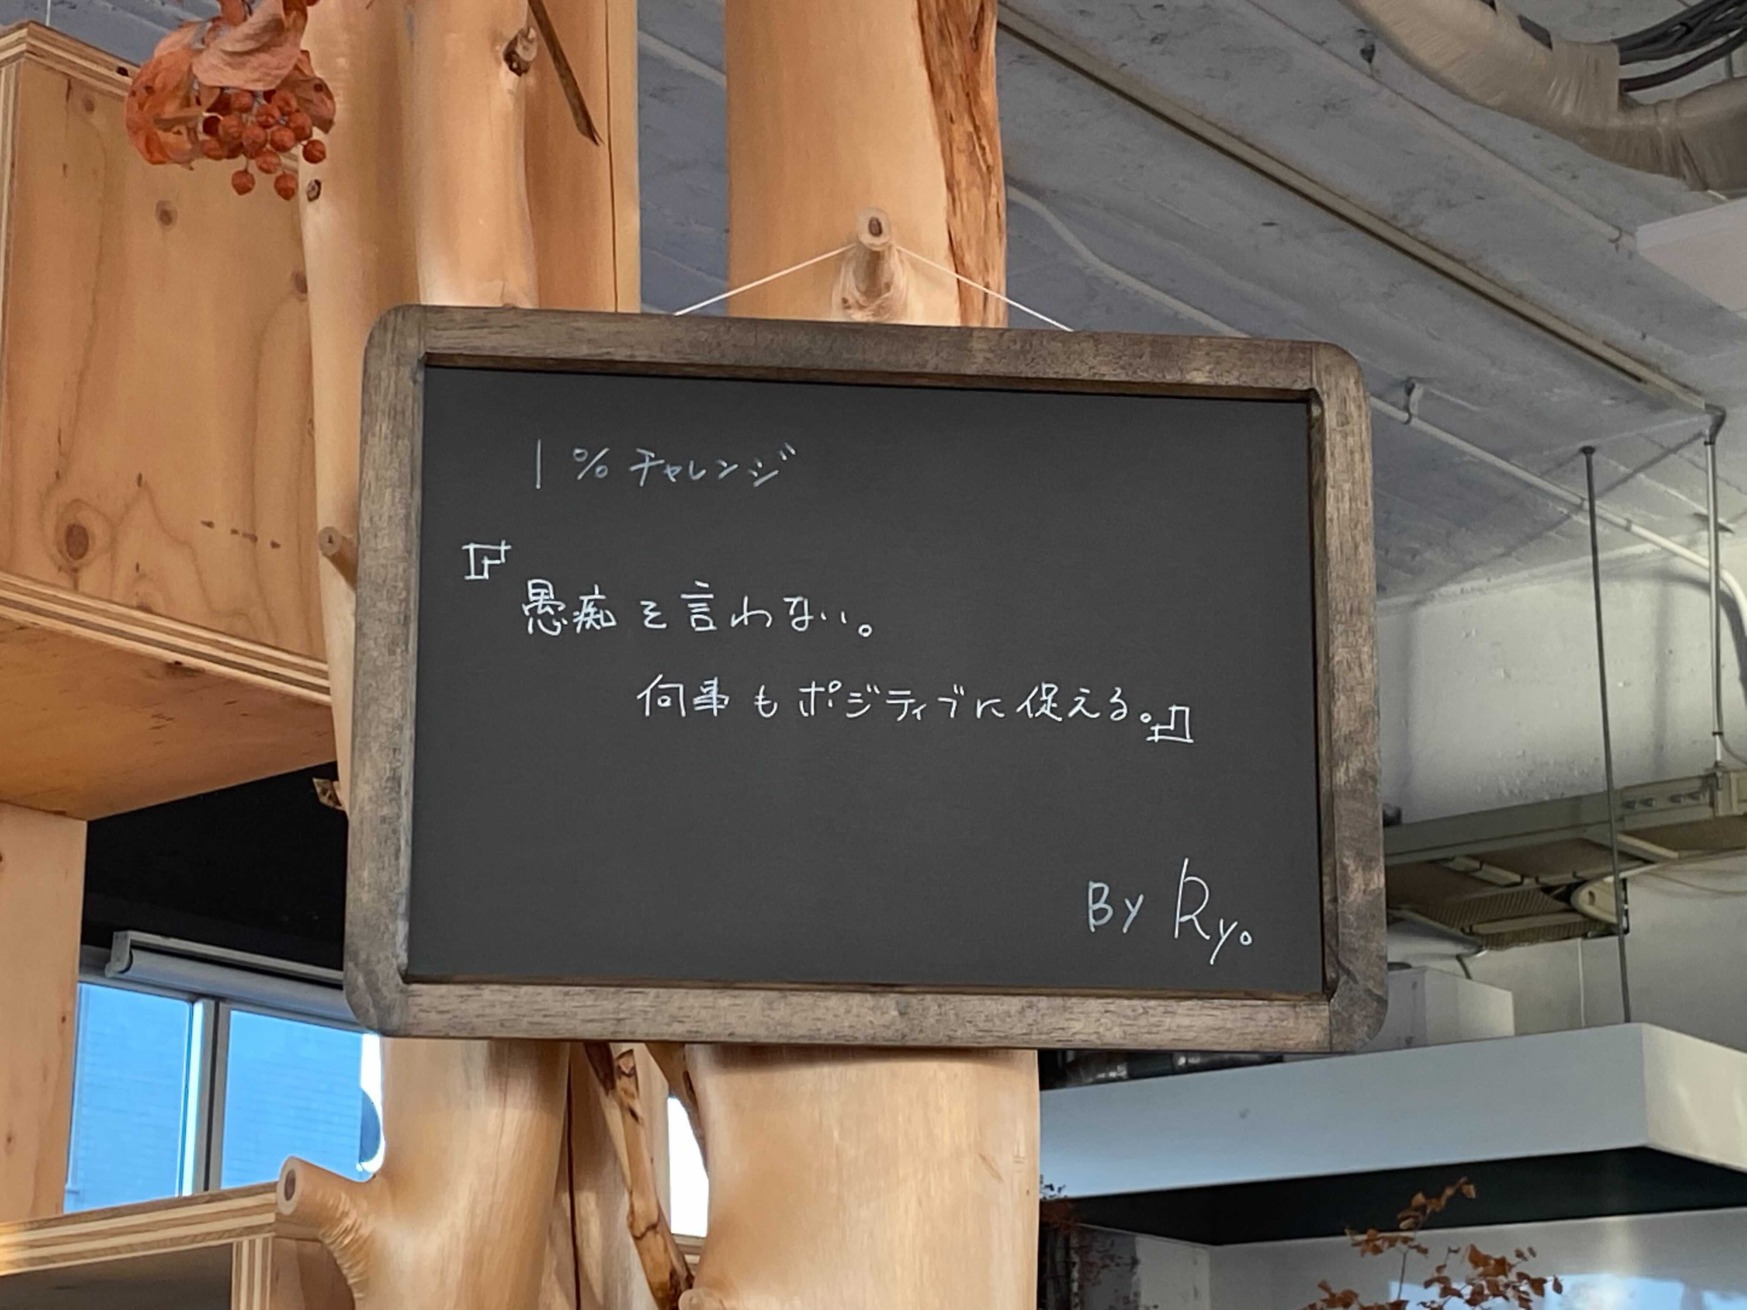 1%チャレンジ
『愚痴を言わない。
何事もポジティブに促える。』
By Ryo